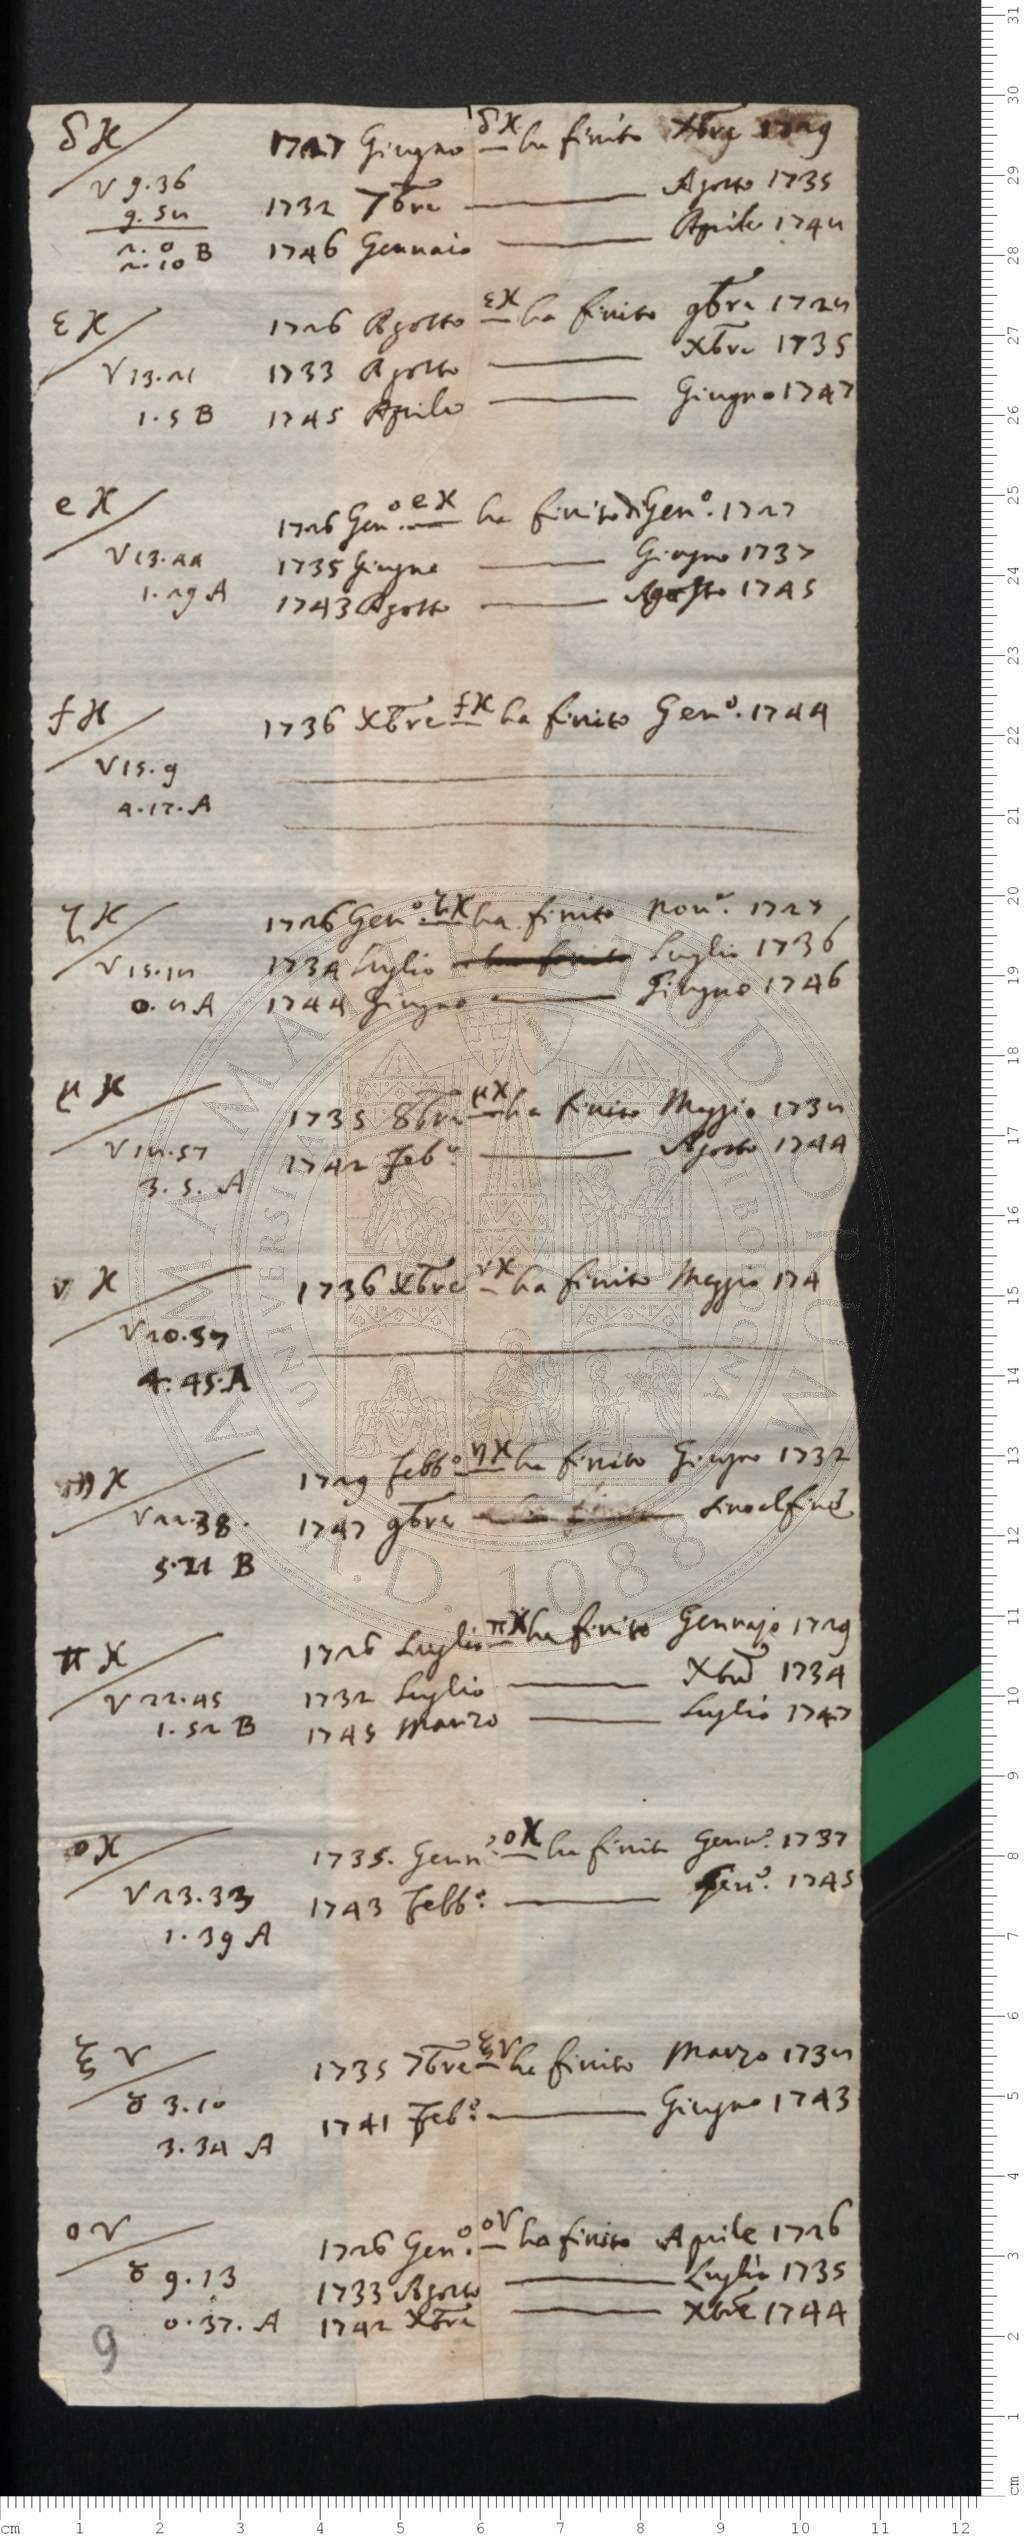 δ ♓ 1727 Giugno δ♓ ha finito Xbre 1729
♈ 9.36
9. 52 1732 7bre Agosto 1735
2. 0 B 1746 Gennaio Aprile 1742
2. 10
ε ♓ 1726 Agosto ε♓ ha finito 9bre 1722
♈ 13.21 1733 Agosto Xbre 1735
1. 5 B 1745 Aprile Giugno 1747
e ♓ 1726 Genº. e♓ ha finito di Genº. 1727
♈ 13.44 1735 Giugno Giugno 1737
1. 29 A 1743 Agosto Agosto 1745
f ♓ 1736 Xbre f♓ ha finito Genº. 1744
♈ 15. 9
4. 17. A
ζ ♓ 1726 Genº. ζ♓ ha finito Nouº. 1727
♈ 15.12 1734 Luglio Luglio 1736
0. 2 A 1744 Giugno Giugno 1746
μ ♓ 1735 8bre μ♓ ha finito Maggio 1732
♈ 12.57 1742 Febº. Agosto 1744
3. 5. A
ν ♓ 1736 Xbre ν♓ ha finito Maggio 174
♈ 20.37
4. 45. A
η ♓ 1729 Febbº η♓ ha finito Giugno 1732
♈ 22.38. 1747 9bre sino al fine
5. 21 B
π ♓ 1726 Luglio π♓ ha finito Gennajo 1729
♈ 22.45 1732 Luglio Xbre 1734
1. 52 B 1745 Marzo Luglio 1747
ο ♓ 1735. Gennº. ο♓ ha finito Gennº. 1737
♈ 23.33 1743 Febbº. Genº. 1745
1. 39 A
ξ ♈ 1735 7bre ξ♈ ha finito Marzo 1732
♉ 3.10 1741 Febº. Giugno 1743
3. 34 A
ο ♈ 1726 Genº. ο♈ ha finito Aprile 1726
♉ 9. 13 1733 Agosto Luglio 1735
0. 37. A 1742 Xbre Xbre 1744
9
ALMA MATER STUDIORUM
UNIVERSITÀ DI BOLOGNA
A.D. 1088